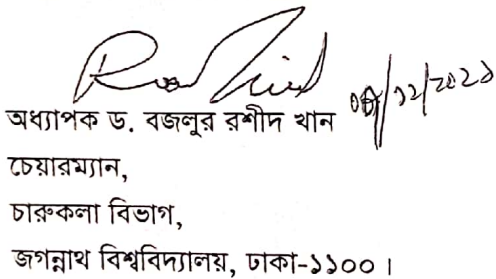 অধ্যাপক ড. বজলুর রশীদ খান
চেয়ারম্যান,
চারুকলা বিভাগ,
জগন্নাথ বিশ্ববিদ্যালয়, ঢাকা-১১০০।